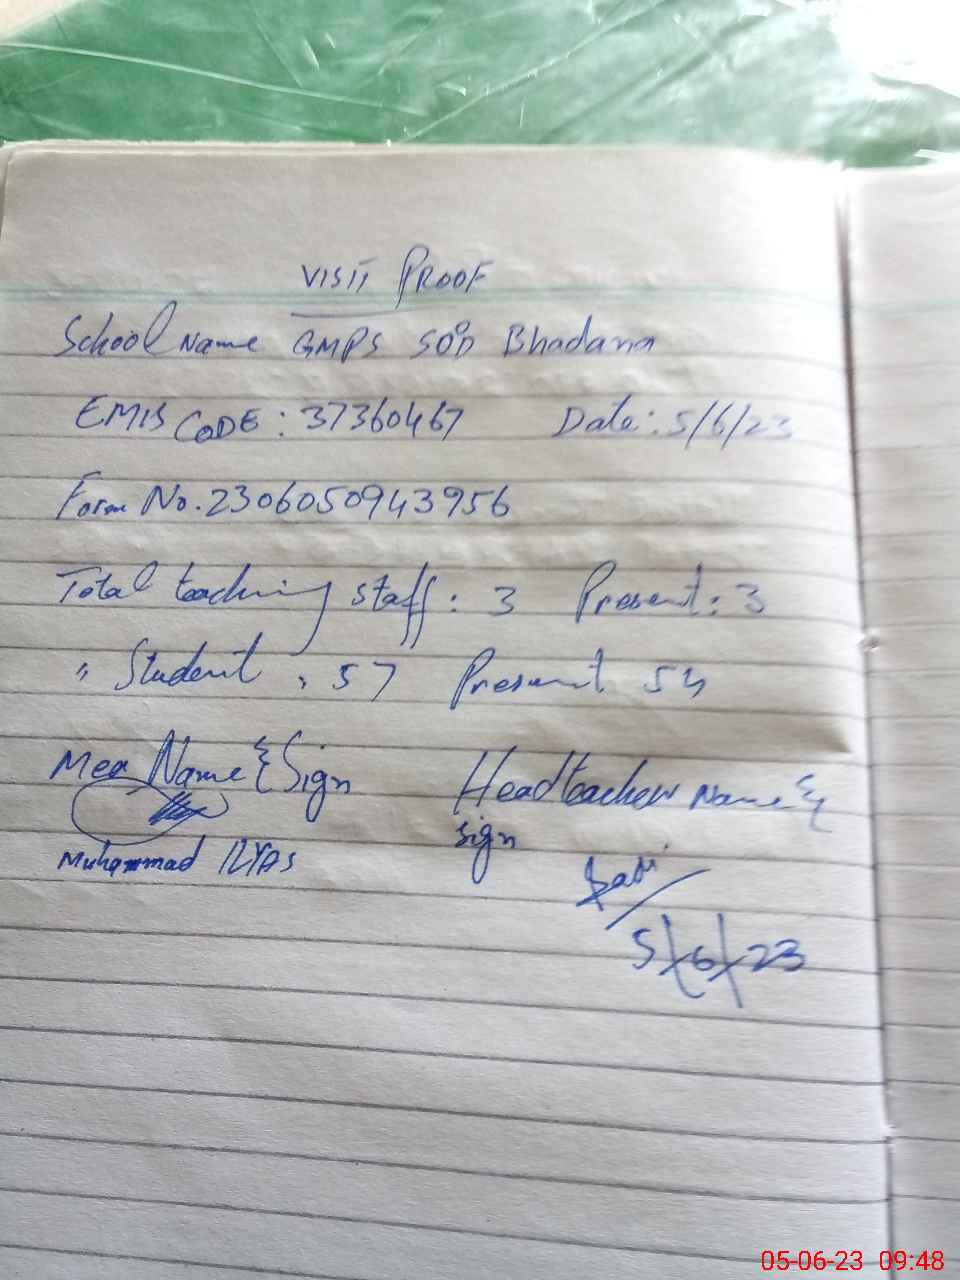 VISIT PROOF
School Name GMPS SOD Bhadana
EMIS CODE: 37360467 Date: 5/6/23
Form No. 2306050943956
Total teaching staff: 3 Present: 3
" Student , 57 Present 54
Mea Name & Sign Headteacher Name &
Sign
Muhammad ILYAS
5/6/23
05-06-23 09:48